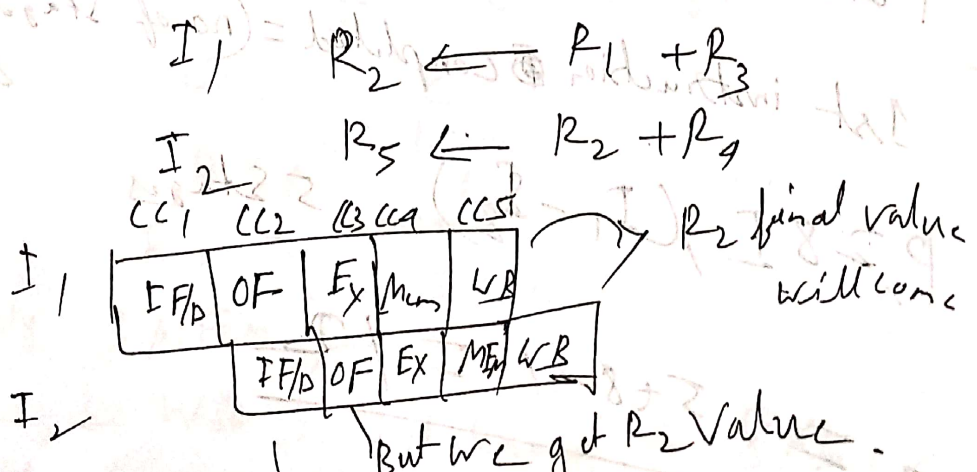 I1 R2 ⟸ R1 + R3
I2 R5 ⟵ R2 + R4
CC1 CC2 CC3 CC4 CC5
I1 IF/D OF Ex Mem WB R2 final value
will come
IF/D OF EX MEM WB
I2
But we get R2 Value.